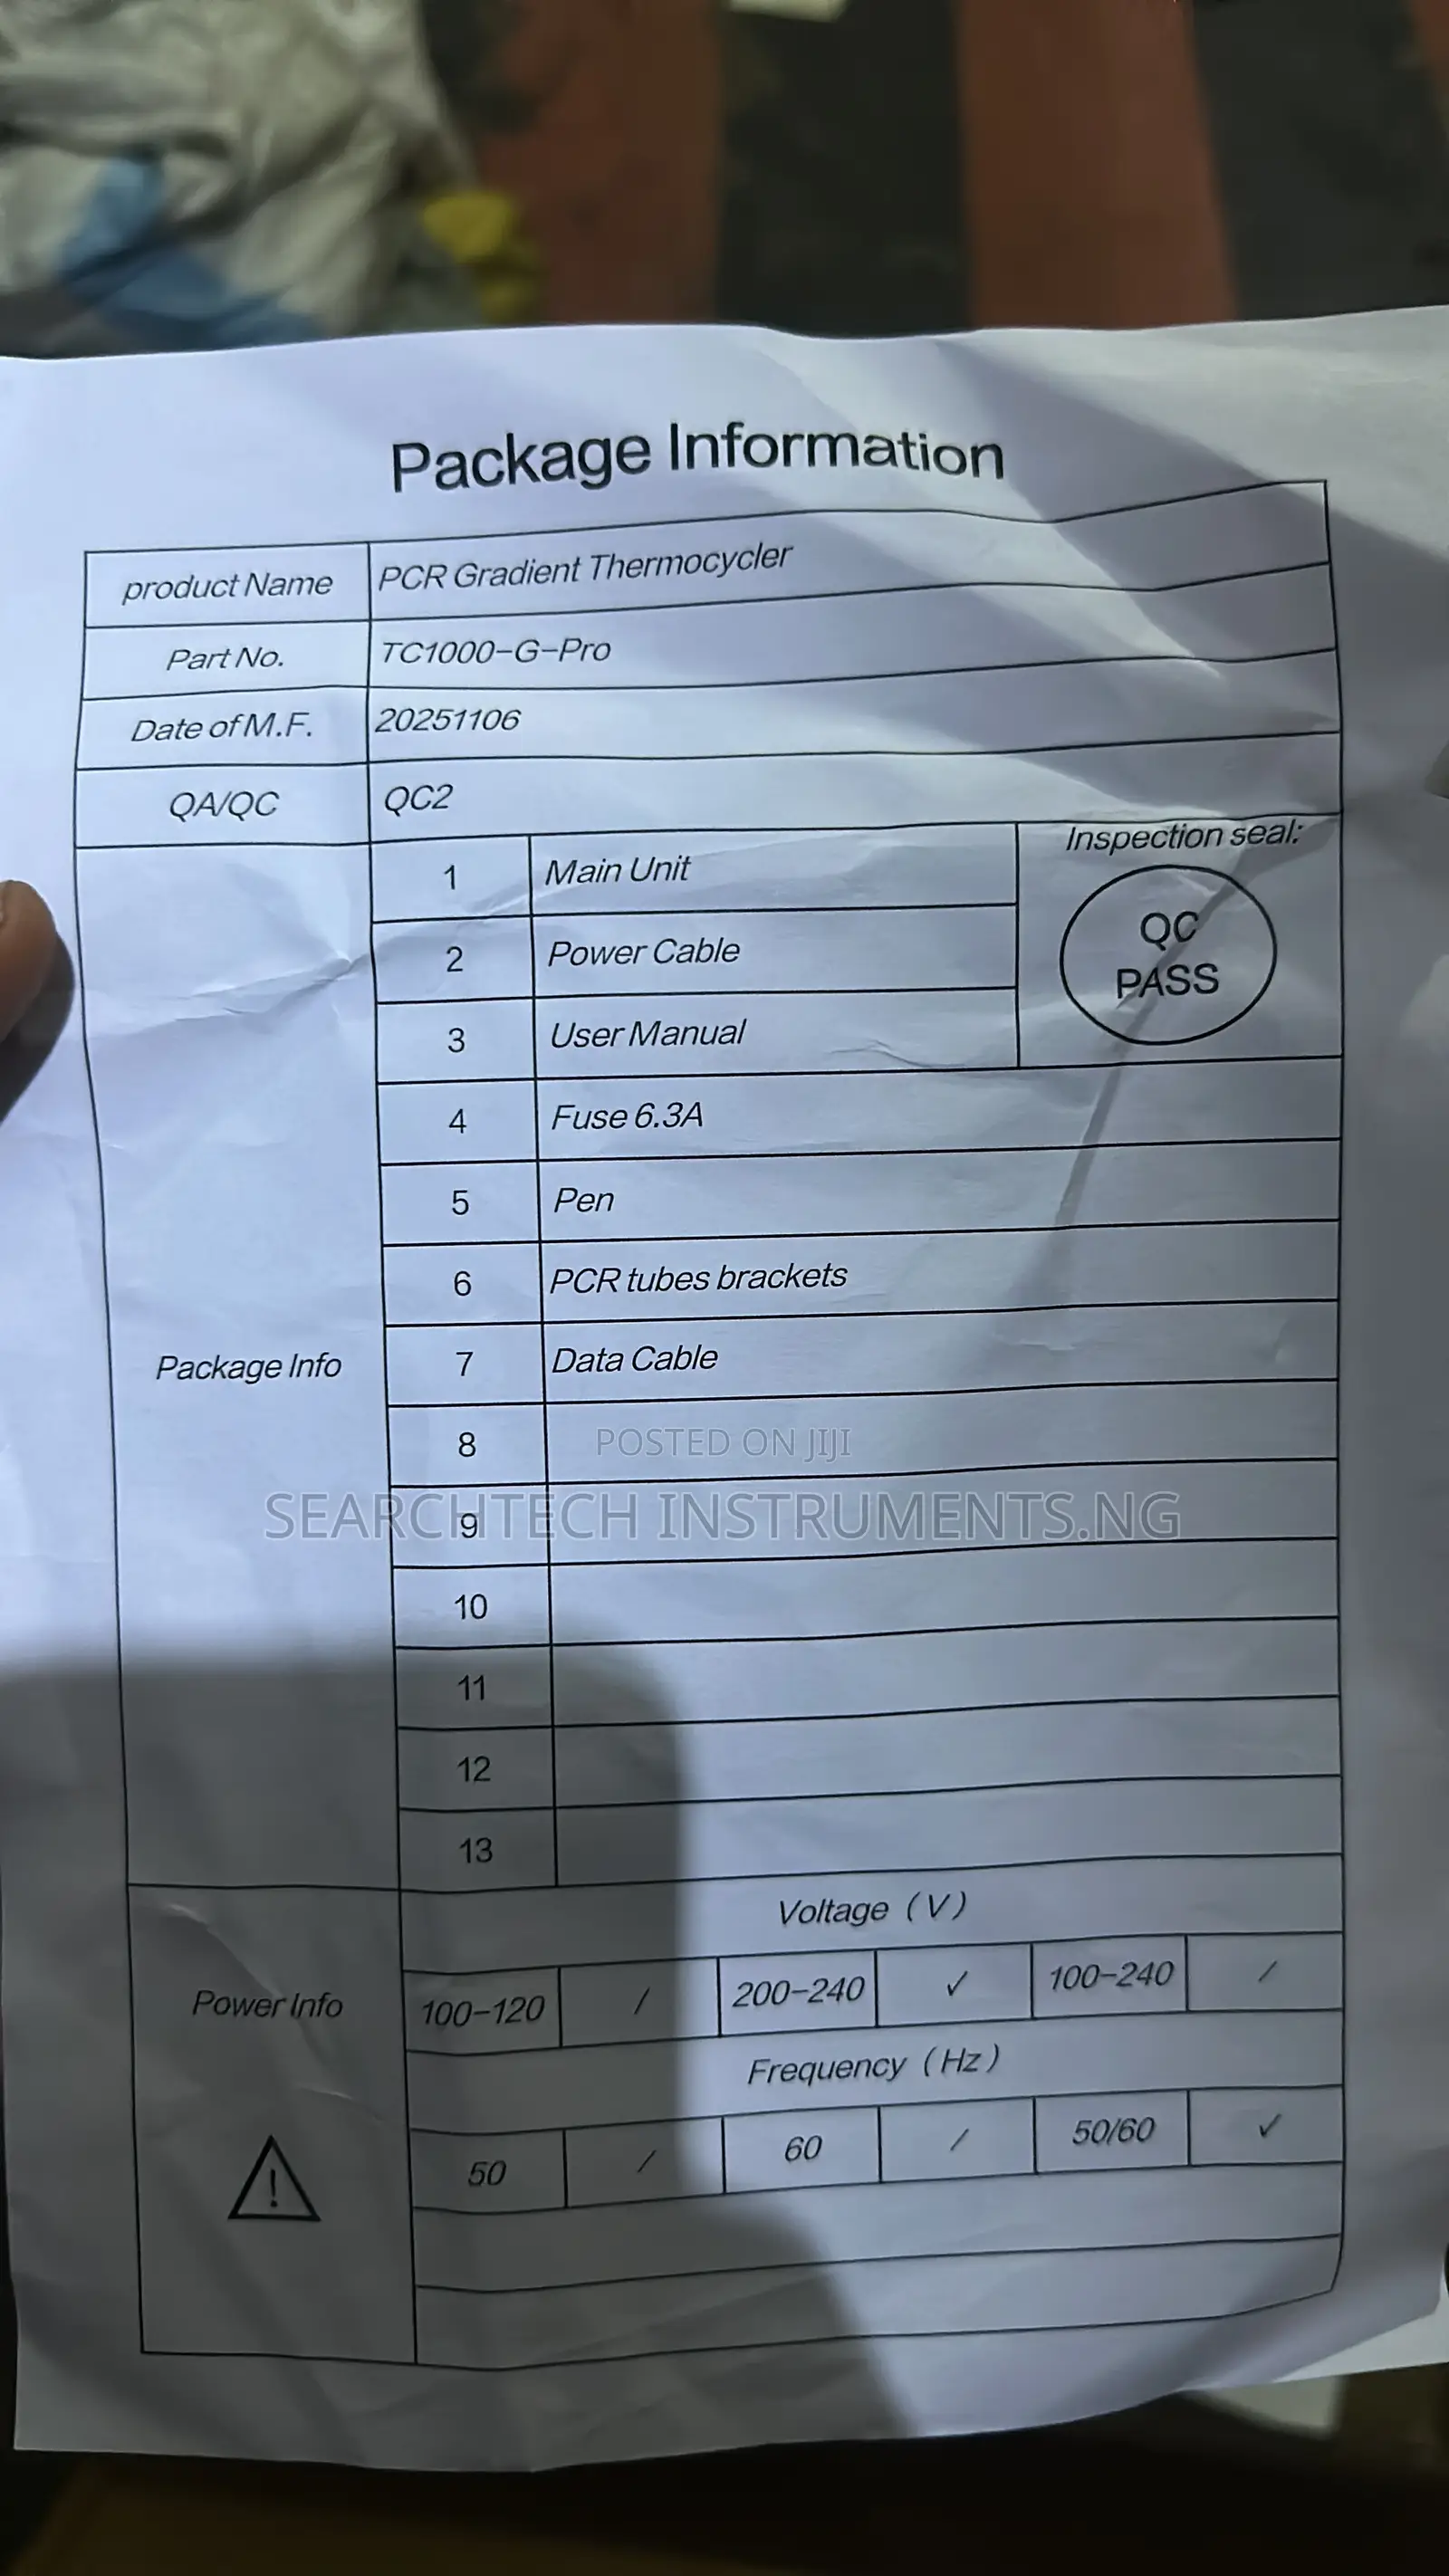 Package Information
product Name PCR Gradient Thermocycler
Part No. TC1000-G-Pro
Date of M.F. 20251106
QA/QC QC2
Inspection seal:
QC
PASS
1 Main Unit
2 Power Cable
3 User Manual
4 Fuse 6.3A
5 Pen
6 PCR tubes brackets
Package Info
7 Data Cable
8
POSTED ON JIJI
9
SEARCHTECH INSTRUMENTS.NG
10
11
12
13
Voltage (V)
Power Info
100-120 / 200-240 ✓ 100-240 /
Frequency (Hz)
50 / 60 / 50/60 ✓
!